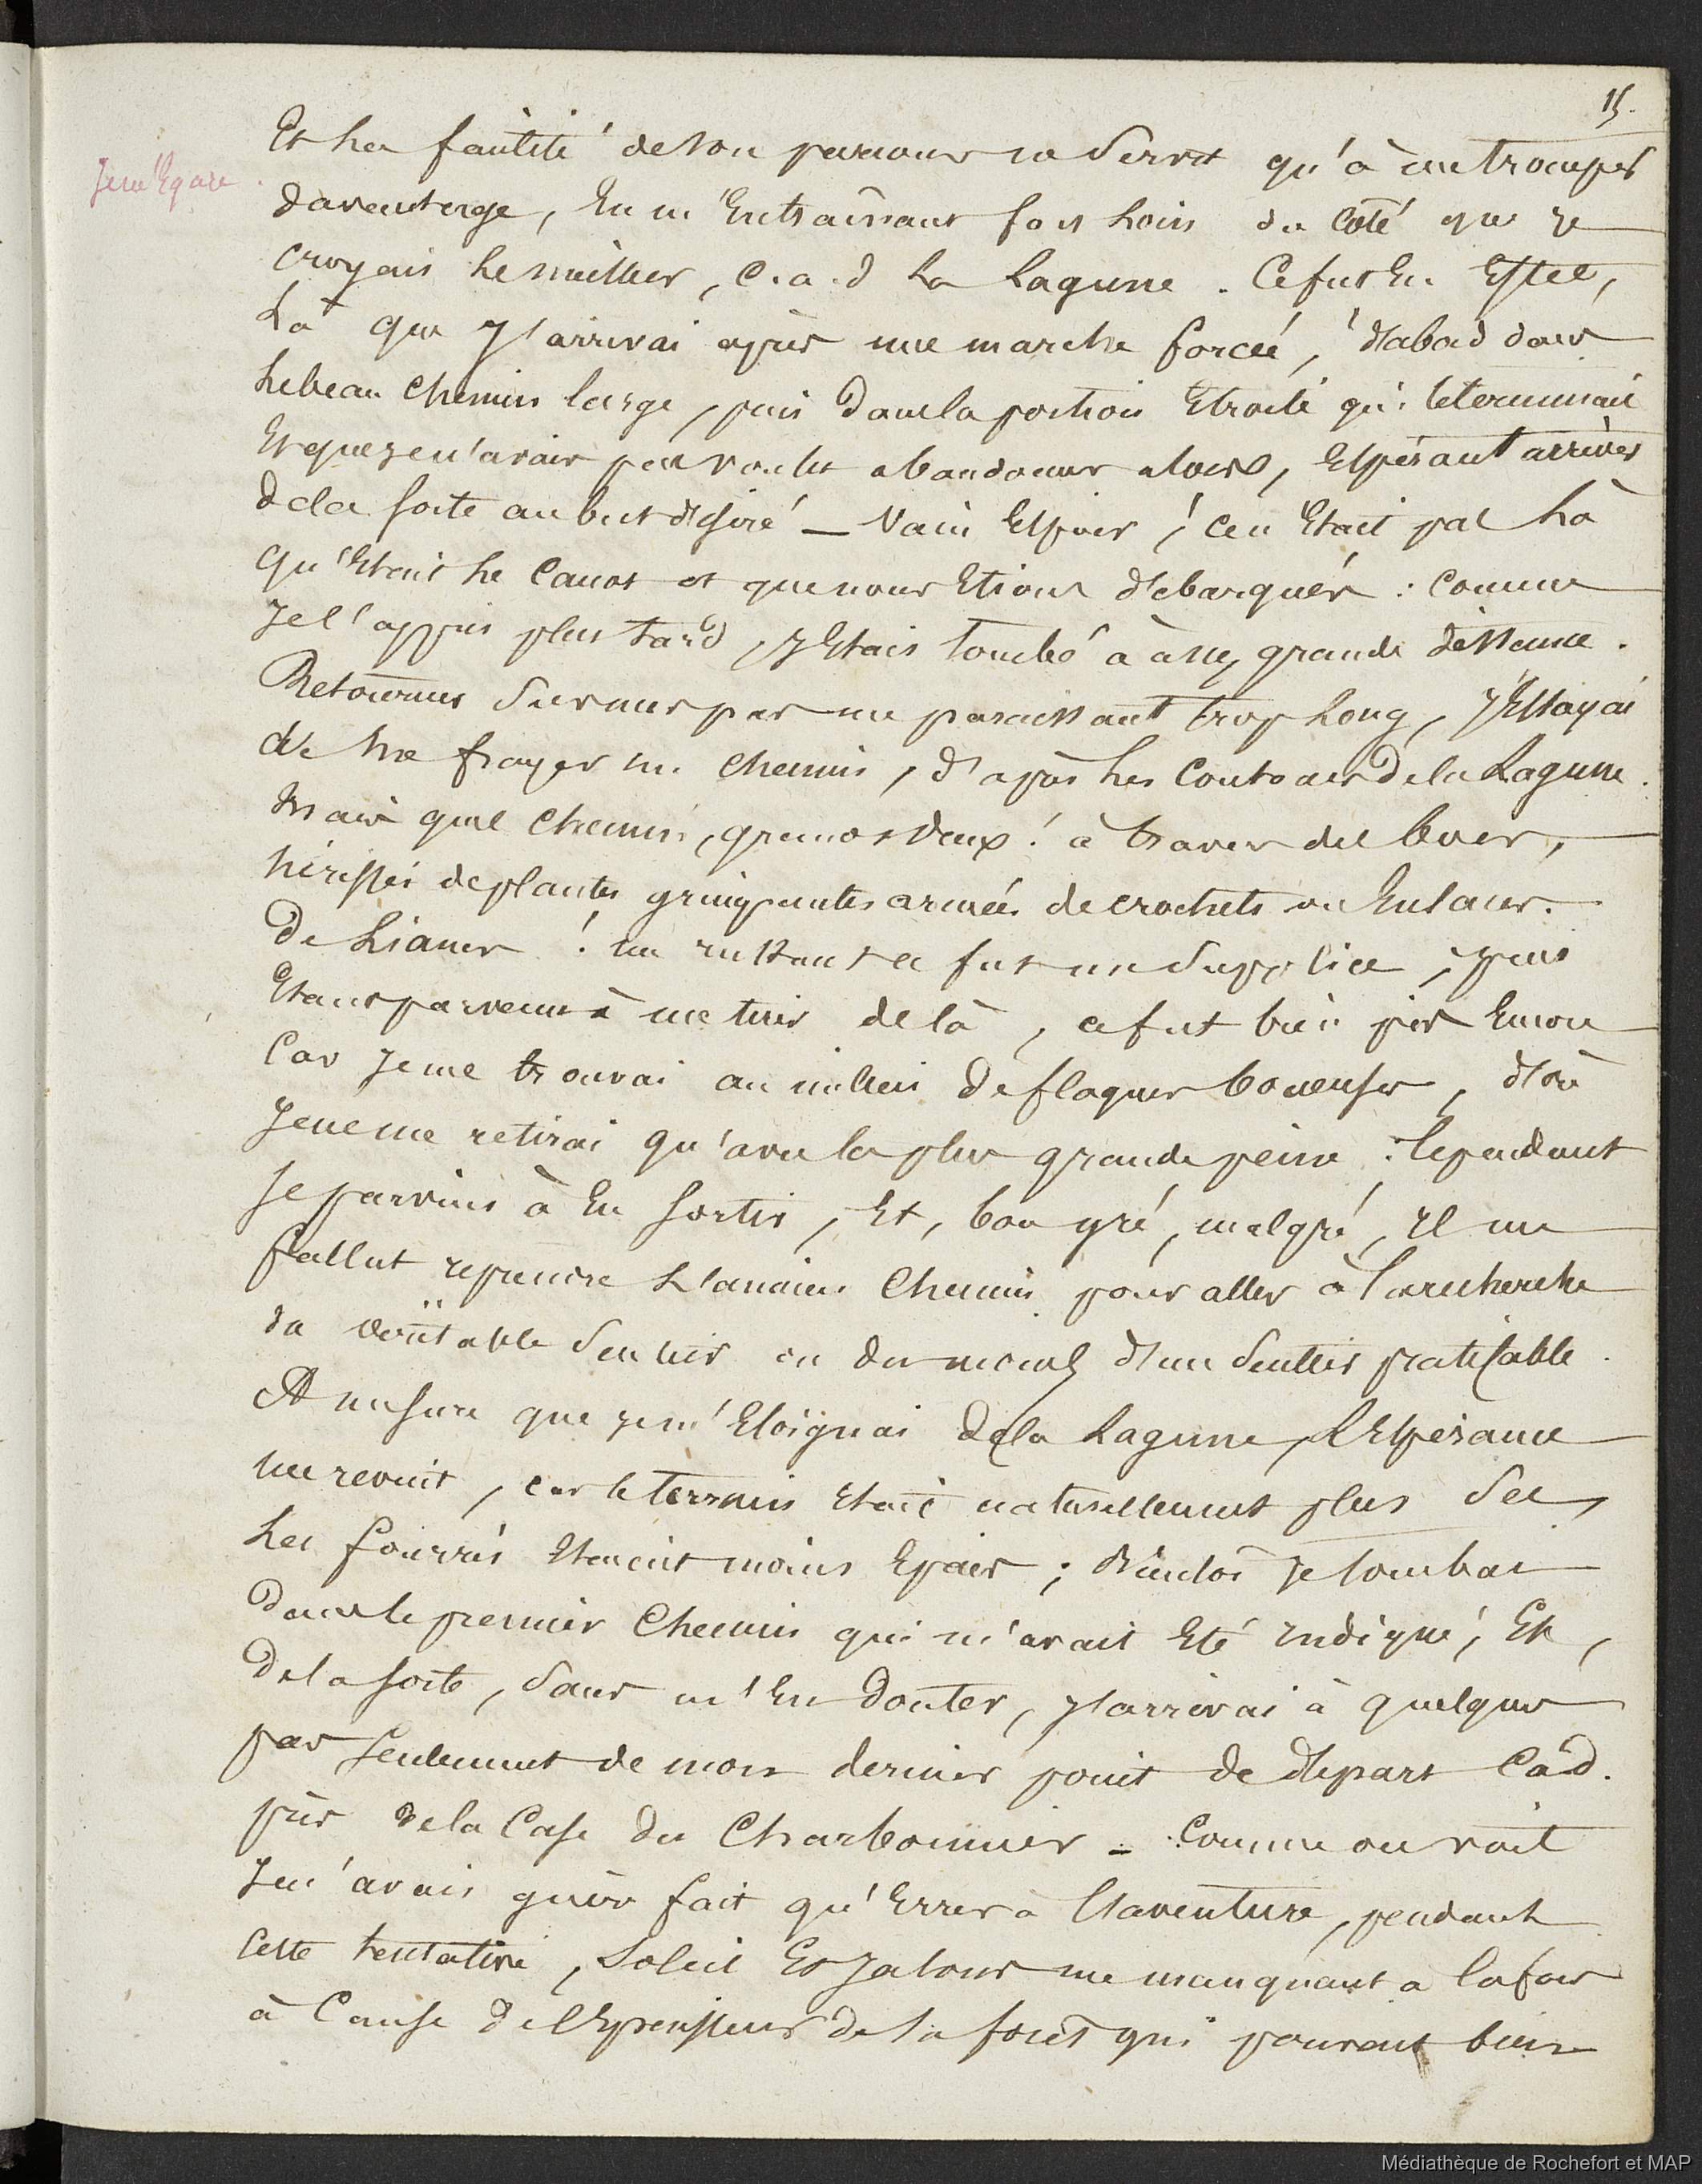 15.
Je m'Egare.
Et la facilité de son parcours ne servit qu'à me tromper
davantage, En m'Entraînant fort loin du Coté que je
croyais le meilleur, C.a.d La Lagune. Ce fut En Effet,
Là que j'arrivai après une marche forcée, d'abord dans
le beau Chemin large, puis dans la portion Etroite qui le terminait
Et que je n'avais pas voulu abandonner alors, Espérant arriver
de la sorte au but désiré — Vain Espoir ! ce n'Etait pas Là
qu'Etait le Canot et que nous Etions débarqués : Comme
je l'appris plus tard, j'Etais tombé à assez grande distance.
Retourner sur mes pas me paraissant trop Long, j'Essayai
de me frayer un Chemin, d'après les Contours de la Lagune.
Mais quel Chemin, grands Dieux ! à travers des bois,
hérissés de plantes grimpantes armées de crochets ou Enlacés
De Lianes ! un instant ce fut un supplice, puis
Etant parvenu à me tirer de là, ce fut bien pis Encore
Car je me trouvai au milieu de flaques boueuses, d'où
je ne me retirai qu'avec la plus grande peine : Cependant
je parvins à En sortir, Et, bon gré, malgré, Il me
fallut reprendre L'ancien Chemin pour aller à la recherche
du véritable sentier ou du moins d'un sentier praticable.
A mesure que je m'Eloignai de la Lagune, L'Espérance
me revint, car le terrain Etait naturellement plus sec,
Les fourrés Etaient moins Epais ; bientôt je tombai
Dans le premier Chemin qui m'avait Eté indiqué, Et,
De la sorte, sans m'En douter, j'arrivai à quelques
pas seulement de mon dernier point de départ C.à.d.
près de la Case du Charbonnier — Comme on voit
je n'avais guère fait qu'Errer à l'aventure, pendant
cette tentative, Soleil Et Jalons me manquant à la fois
à Cause de l'Epaisseur de la forêt qui pouvait bien